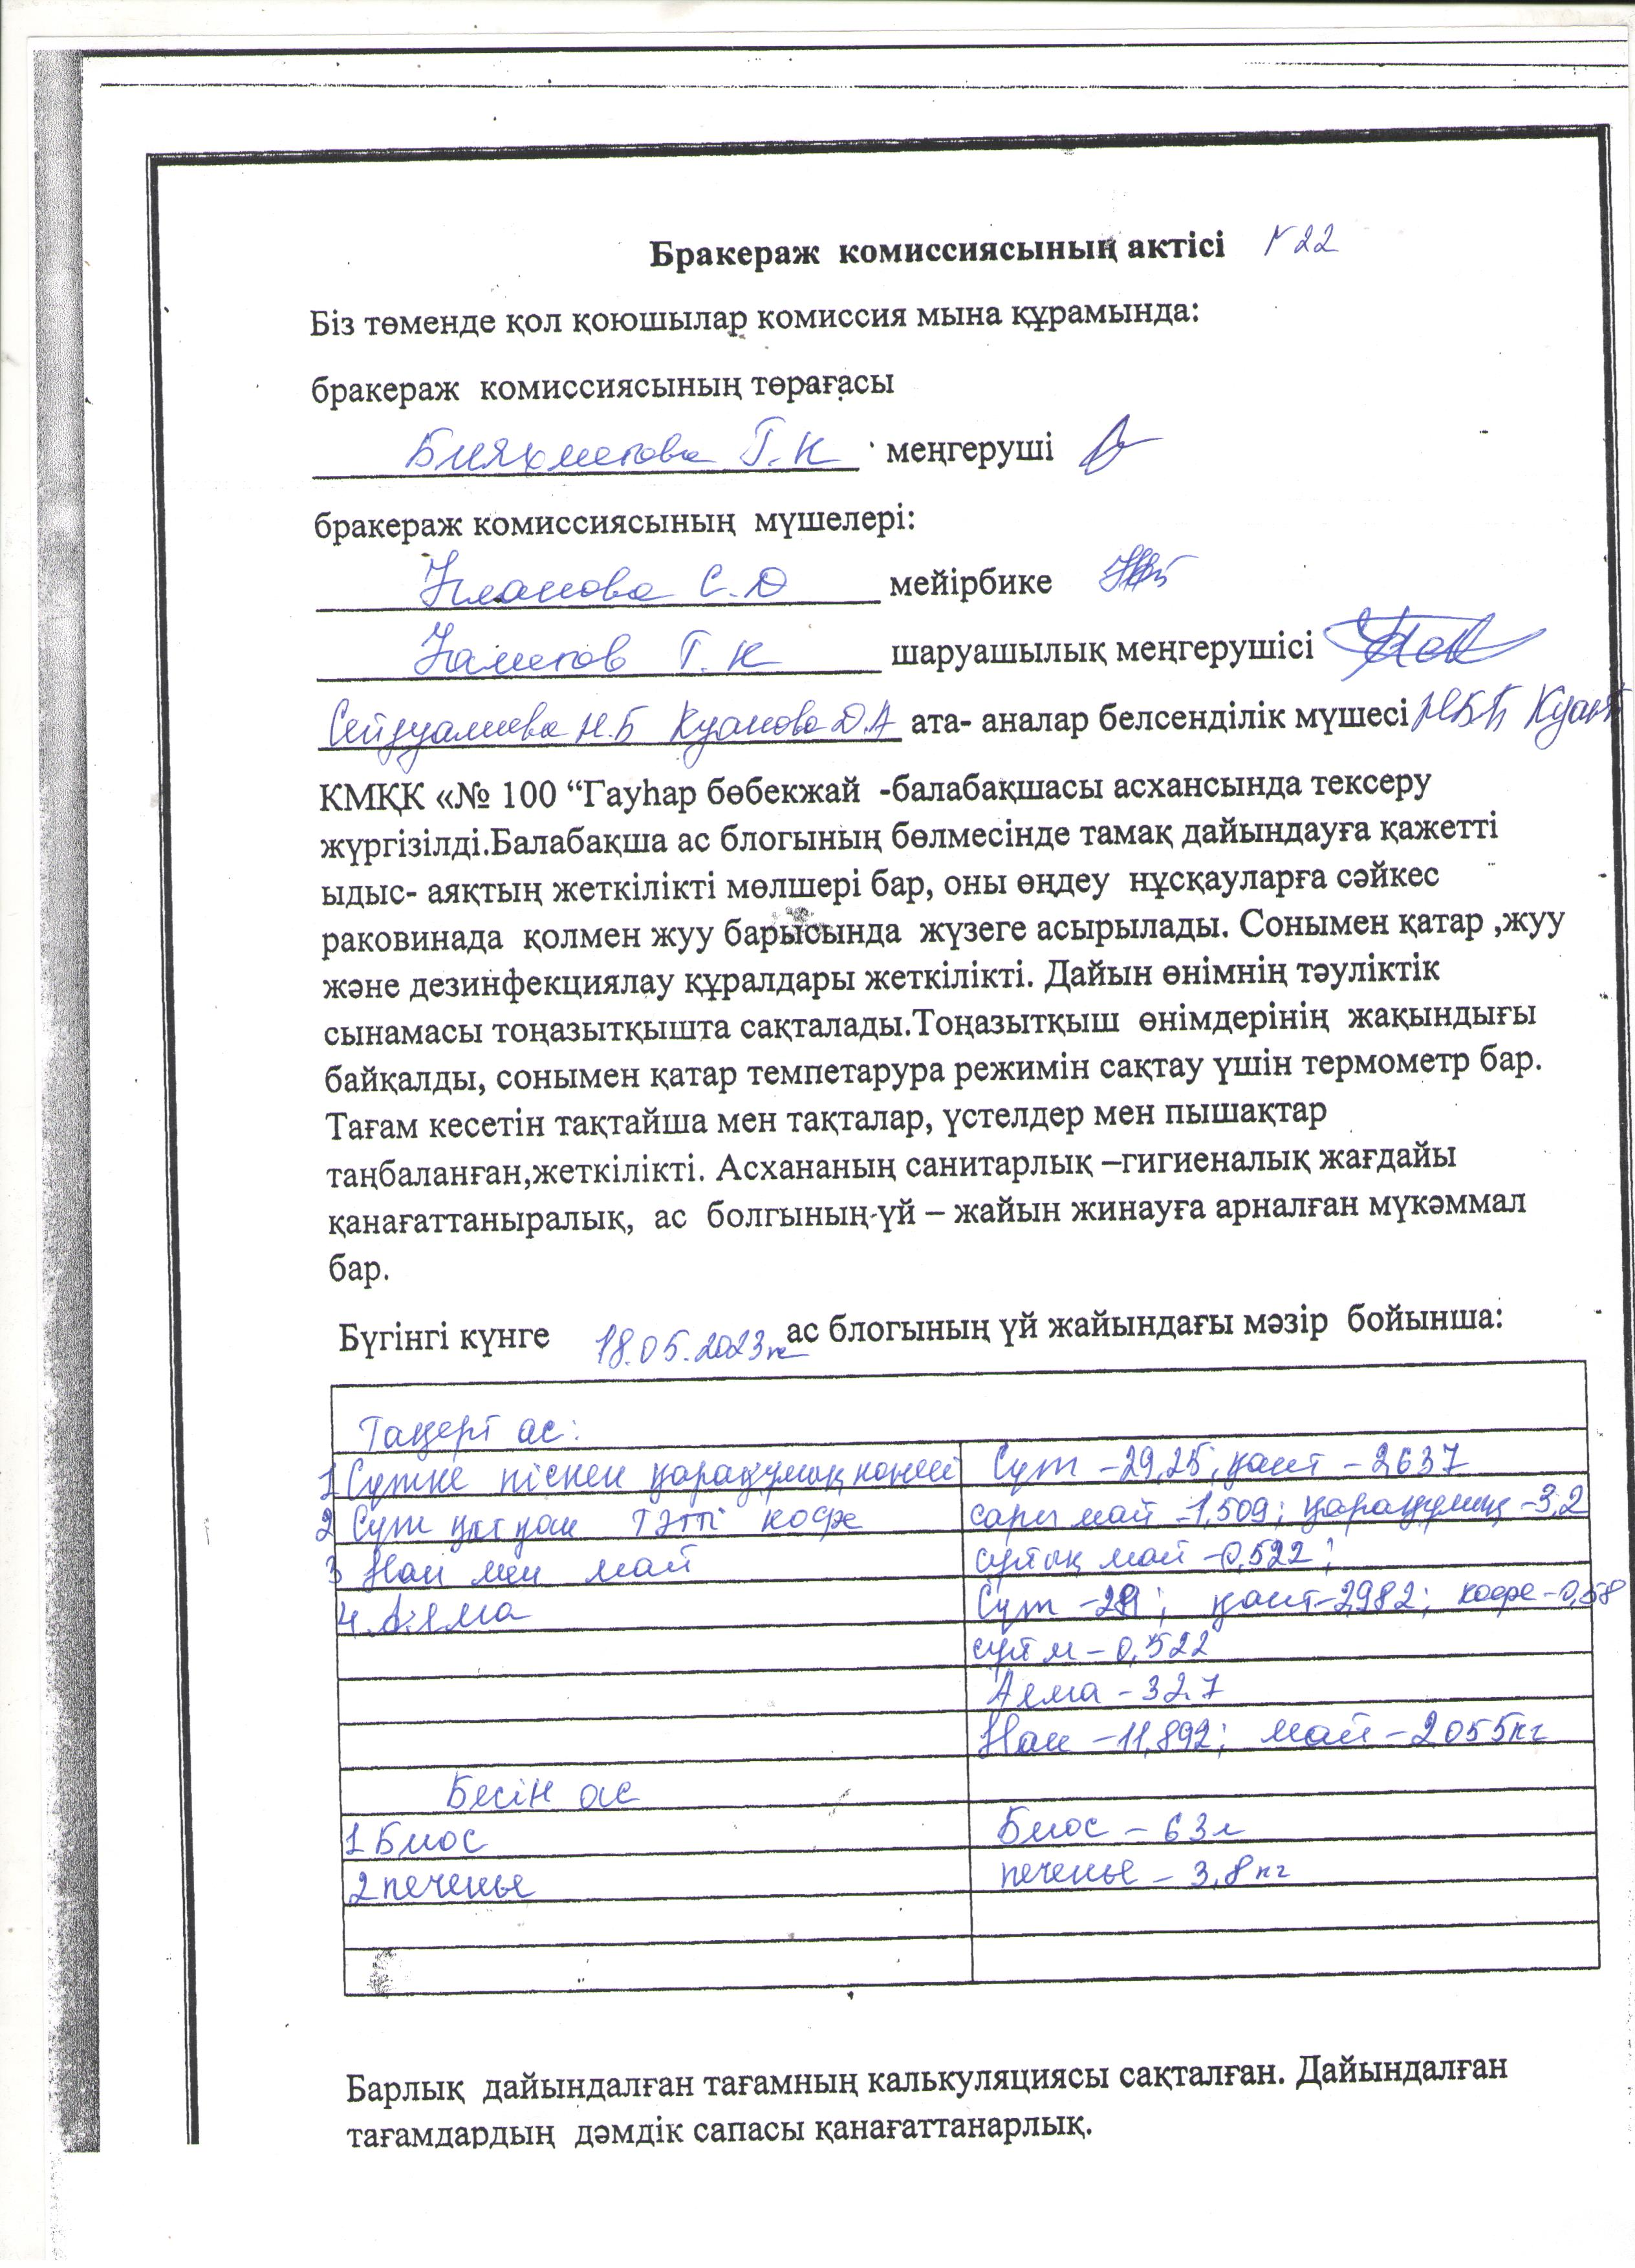 Бракераж комиссиясының актісі №22
Біз төменде қол қоюшылар комиссия мына құрамында:
бракераж комиссиясының төрағасы
Бияхметова Г.К меңгеруші
бракераж комиссиясының мүшелері:
С.О мейірбике
Г.К шаруашылық меңгерушісі
Н.Б Куанова Д.А ата- аналар белсенділік мүшесі
КМҚК «№ 100 “Гауһар бөбекжай -балабақшасы асхансында тексеру
жүргізілді.Балабақша ас блогының бөлмесінде тамақ дайындауға қажетті
ыдыс- аяқтың жеткілікті мөлшері бар, оны өңдеу нұсқауларға сәйкес
раковинада қолмен жуу барысында жүзеге асырылады. Сонымен қатар ,жуу
және дезинфекциялау құралдары жеткілікті. Дайын өнімнің тәуліктік
сынамасы тоңазытқышта сақталады.Тоңазытқыш өнімдерінің жақындығы
байқалды, сонымен қатар темпетарура режимін сақтау үшін термометр бар.
Тағам кесетін тақтайша мен тақталар, үстелдер мен пышақтар
таңбаланған,жеткілікті. Асхананың санитарлық –гигиеналық жағдайы
қанағаттаныралық, ас болгының үй – жайын жинауға арналған мүкәммал
бар.
Бүгінгі күнге 18.05.2023ж ас блогының үй жайындағы мәзір бойынша:
Таңерт ас:
1 Сүтке піскен қарақұмық көжесі Сүт – 29,25; қант – 2,637
2 Сүт қосқан тәтті кофе сары май – 1,509; қарақұмық – 3,2
3 Нан мен май сұйық май – 0,522;
4. Алма Сүт – қант – 2,982; кофе – 0,58
сұй м – 0,522
Алма – 32.7
Нан – 11,892; май – 2,055кг
Бесін ас
1 Биос Биос – 63л
2 печенье печенье – 3,8кг
Барлық дайындалған тағамның калькуляциясы сақталған. Дайындалған
тағамдардың дәмдік сапасы қанағаттанарлық.